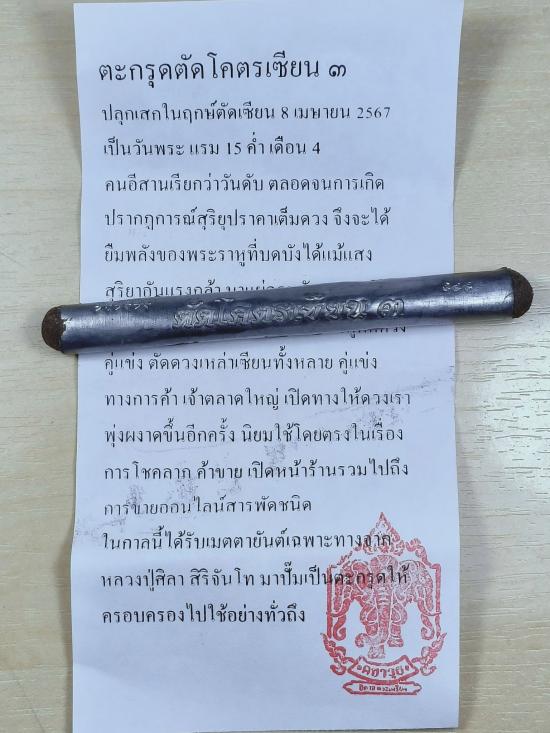 ตะกรุดตัดโคตรเซียน ๓
ปลุกเสกในฤกษ์ตัดเซียน 8 เมษายน 2567
เป็นวันพระ แรม 15 ค่ำ เดือน 4
คนอีสานเรียกว่าวันดับ ตลอดจนการเกิด
ปรากฏการณ์สุริยุปราคาเต็มดวง จึงจะได้
ยืมพลังของพระราหูที่บดบังได้แม้แสง
สุริยากันแรงกล้า
ตัดโคตรเซียน ๓
คู่แข่ง ตัดดวงเหล่าเซียนทั้งหลาย คู่แข่ง
ทางการค้า เจ้าตลาดใหญ่ เปิดทางให้ดวงเรา
พุ่งผงาดขึ้นอีกครั้ง นิยมใช้โดยตรงในเรื่อง
การโชคลาภ ค้าขาย เปิดหน้าร้านรวมไปถึง
การขายออนไลน์สารพัดชนิด
ในกาลนี้ได้รับเมตตายันต์เฉพาะทางจาก
หลวงปู่สิลา สิริจันโท มาปั๊มเป็นตะกรุดให้
ครอบครองไปใช้อย่างทั่วถึง
คชาวุธ